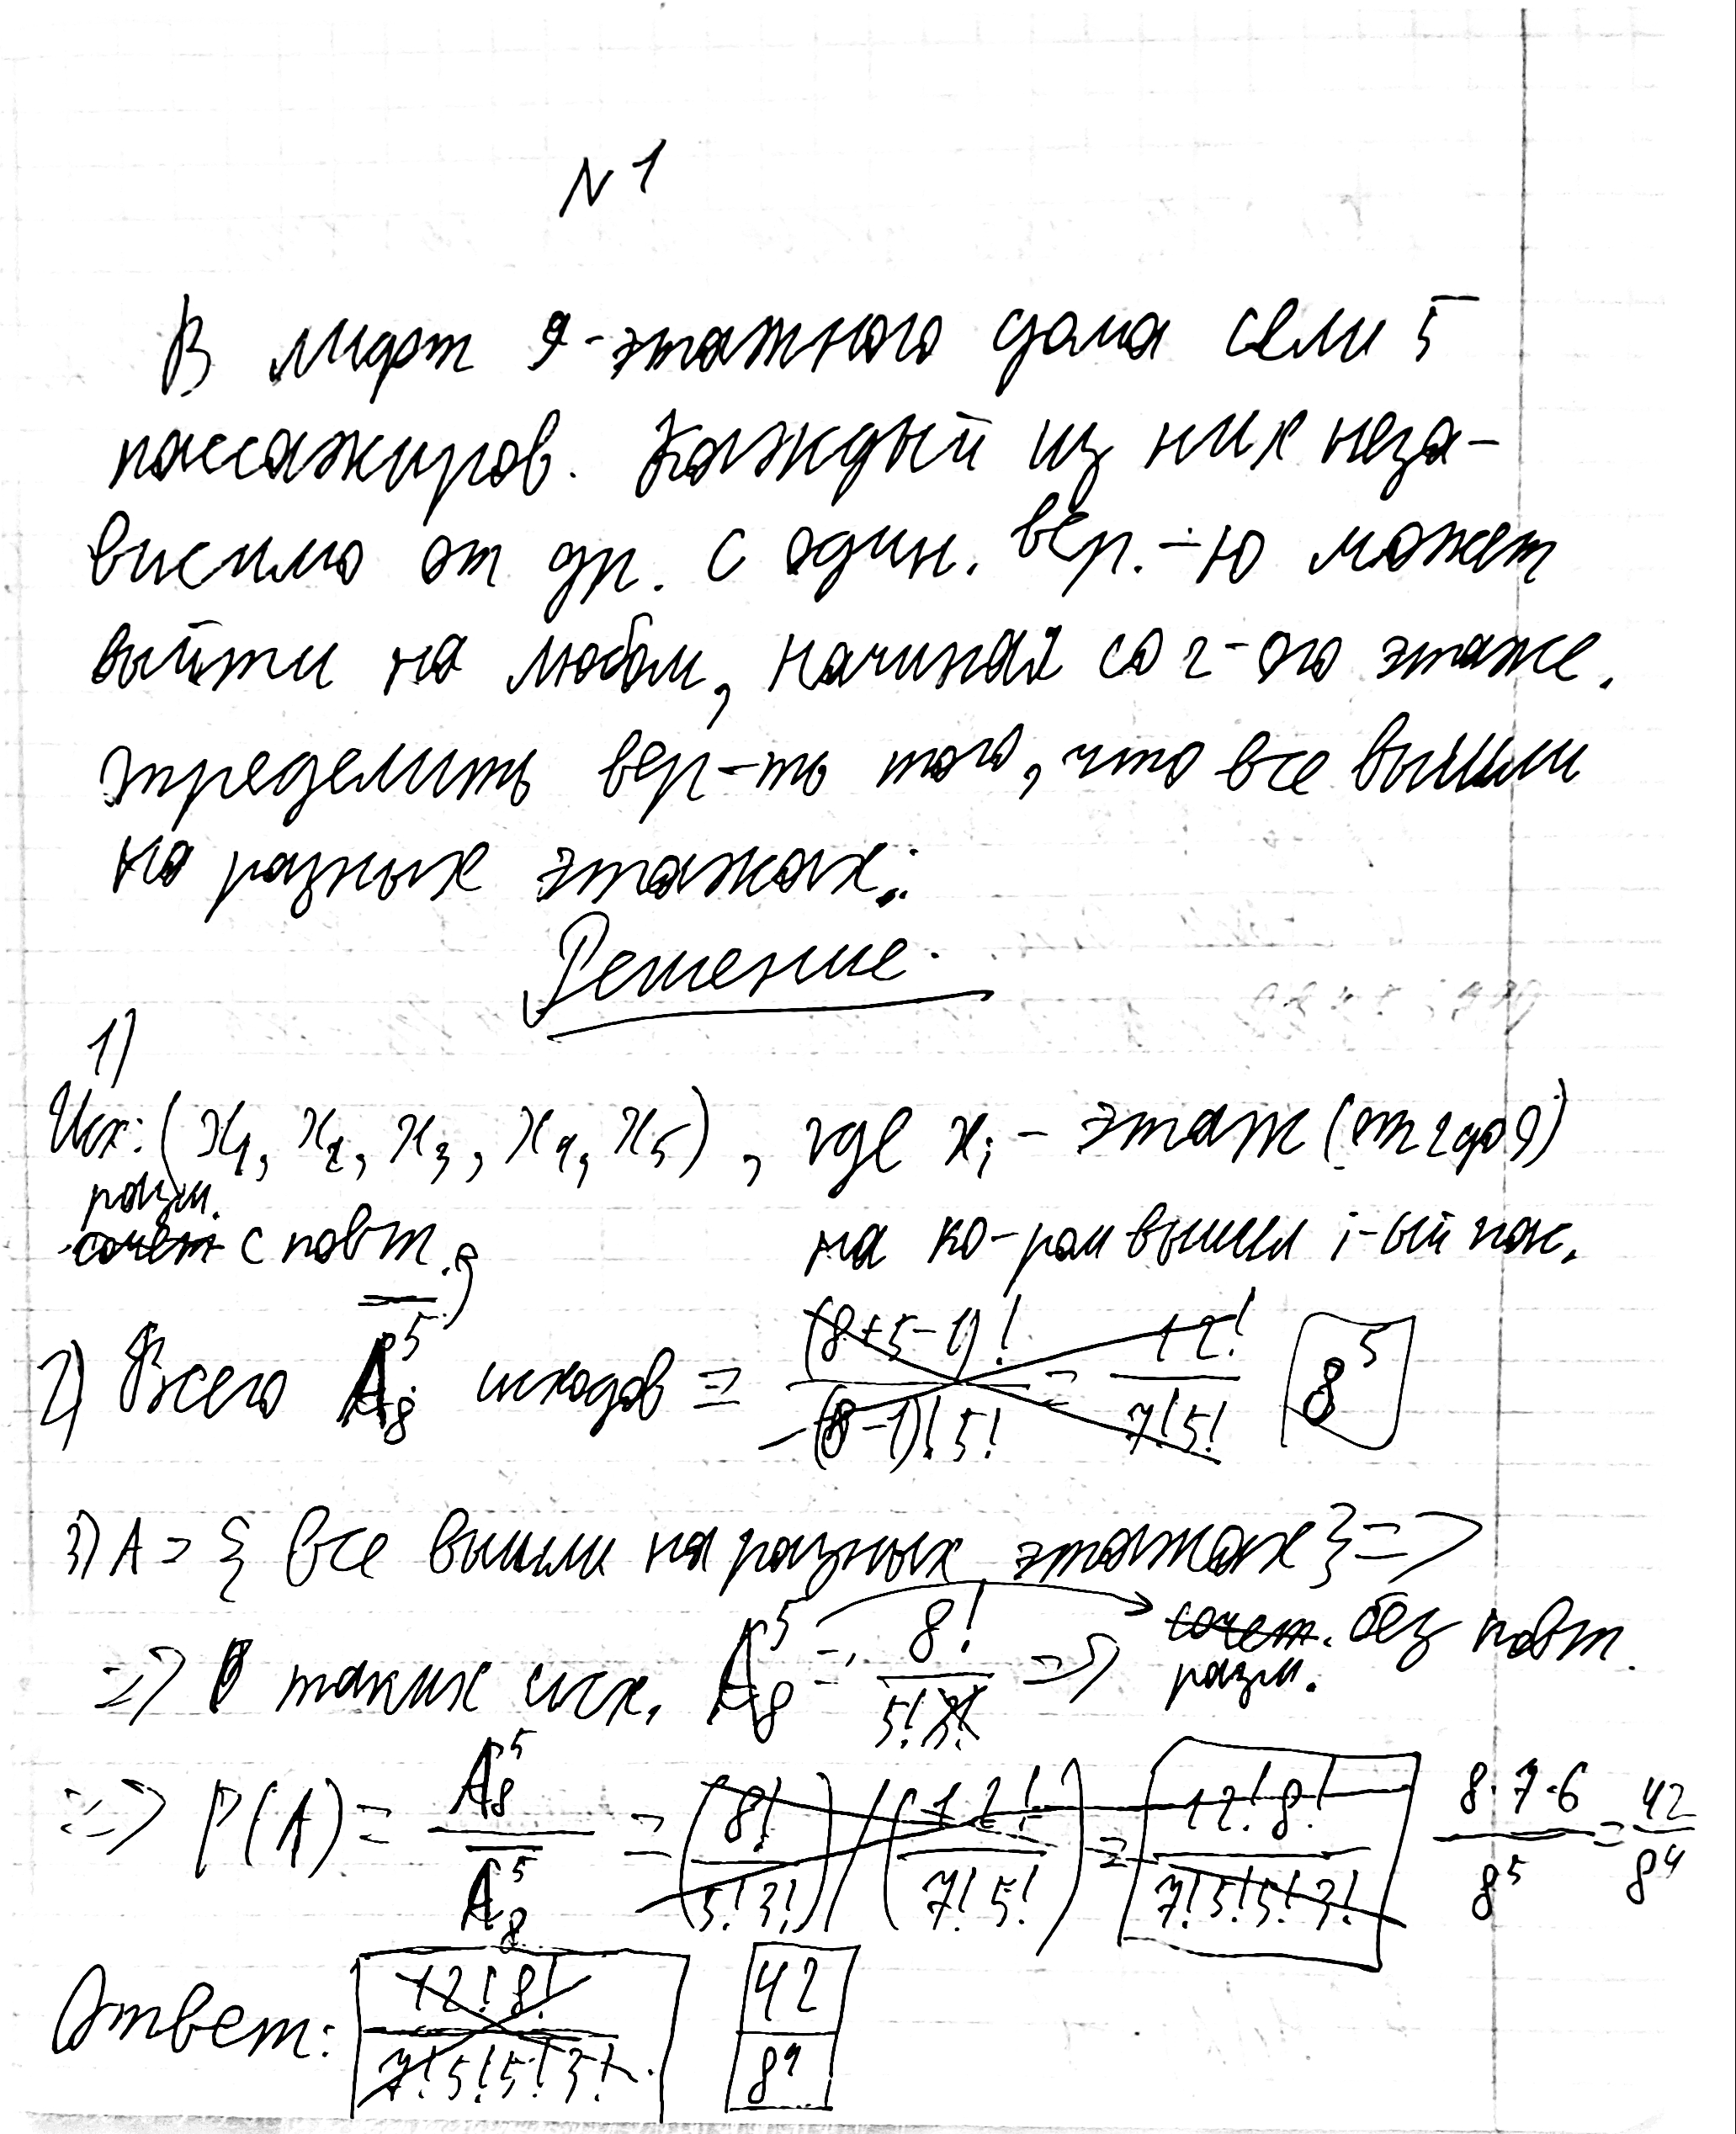 N 1
В лифт 9-этажного дома сели 5
пассажиров. Каждый из них неза-
висимо от др. с один. вер.-ю может
выйти на любом, начиная со 2-ого этаже.
Определить вер-ть того, что все вышли
на разных этажах:
Решение.
1)
Исх: (x₁, x₂, x₃, x₄, x₅), где xᵢ - этаж (от 2 до 9)
разм.
сочет с повт. на ко-ром вышел i-ый пас.
2) Всего A̅₈⁵ исходов = (8+5-1)! / (8-1)! 5! = 12! / 7! 5! 8⁵
3) A = { все вышли на разных этажах } =>
=> таких исх. A₈⁵ = 8! / 5! 3! => сочет. без повт.
разм.
=> P(A) = A₈⁵ / A̅₈⁵ = (8! / 5! 3!) / (12! / 7! 5!) = 12! 8! / 7! 5! 5! 3! 8·7·6 / 8⁵ = 42 / 8⁴
Ответ: 12! 8! / 7! 5! 5! 3! 42 / 8⁴